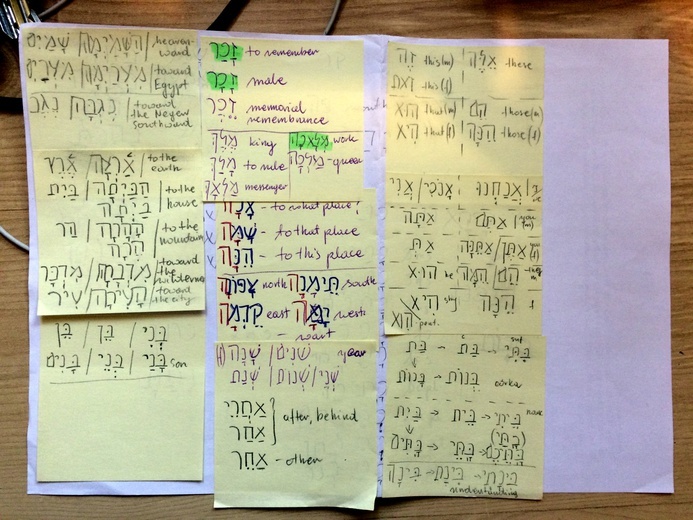 שָׁמַיִם / הַשָּׁמַיְמָה / heaven-
ward
מִצְרַיִם / מִצְרַיְמָה / toward
Egypt
נֶגֶב / נֶגְבָּה / toward
the Negev
southward
אֶרֶץ / אַרְצָה / to the
earth
בַּיִת / הַבַּיְתָה / to the
בֵּיתָה / house
הַר / הָהָרָה / to the
הֶרָה / mountain
מִדְבָּר / מִדְבָּרָה / toward
the
wilderness
עִיר / הָעִירָה / toward
the city
בֵּן / בֶּן / בְּנִי
בָּנִים / בְּנֵי / בָּנַי son
זָכַר to remember
זָכָר male
זֵכֶר memorial
remembrance
מֶלֶךְ king מְלָאכָה work
מָלַךְ to rule מַלְכָּה - queen
מַלְאָךְ messenger
אָנָה - to what place?
שָׁמָּה - to that place
הֵנָּה - to this place
צָפוֹנָה north תֵּימָנָה south
קֵדְמָה east יָמָּה west
שָׁנָה / שָׁנִים year
שְׁנַת / שְׁנוֹת / שְׁנֵי
אַחֲרֵי
אַחַר } after, behind
אַחֵר - other
זֶה this (m) אֵלֶּה these
זֹאת this (f)
הוּא that (m) הֵם those (m)
הִיא that (f) הֵנָּה those (f)
אֲנִי / אָנֹכִי / אֲנַחְנוּ
אַתָּה / אַתֶּם you
אַתְּ / אַתֵּנָה / אַתֶּן
הוּא he הֵמָּה / הֵם
הִיא she הֵנָּה f
הִוא pent.
בַּת → בַּת → בִּתִּי
בָּנוֹת → בְּנוֹת
בַּיִת → בֵּית → בֵּיתִי house
בָּתִּים → בָּתֵּי → בָּתֵּיכֶם
(בָּתַּי)
בִּינָה → בִּינַת → בִּינָתִי
understanding